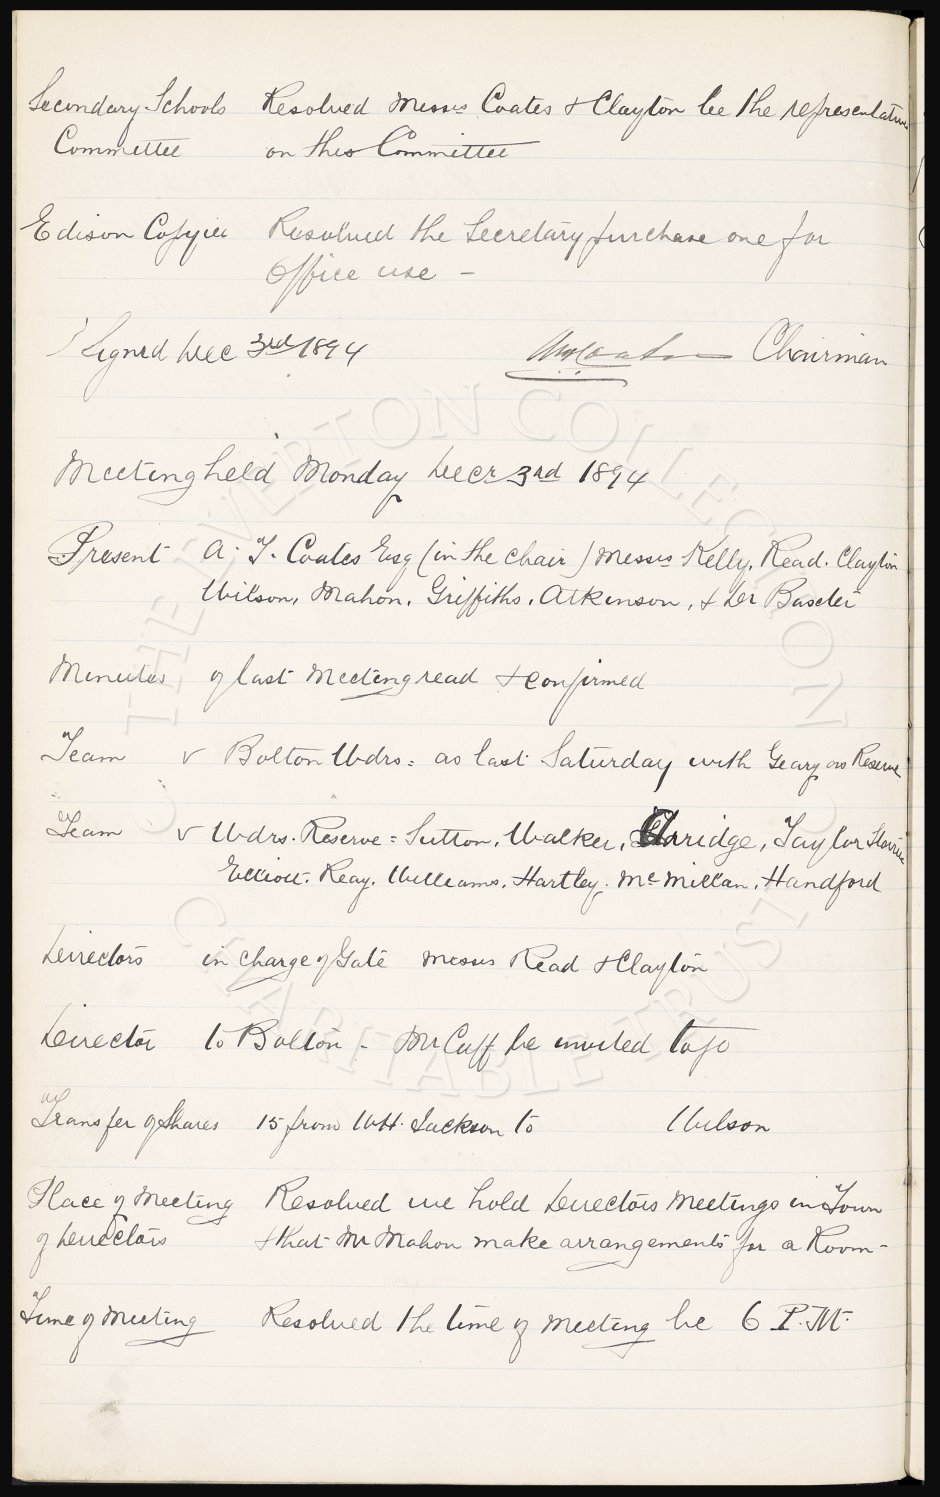 Secondary Schools Resolved Messrs Coates & Clayton be the representatives
Committee on this Committee
Edison Copyier Resolved the Secretary purchase one for
Office use -
Signed Dec 3rd 1894 Chairman
Meeting held Monday Decr 3rd 1894
Present A. T. Coates Esq (in the chair) Messrs Kelly, Read, Clayton
Wilson, Mahon, Griffiths, Atkinson, & Dr Baxter
Minutes of last Meeting read & confirmed
Team v Bolton Wdrs: as last Saturday with Geary as Reserve
Team v Wdrs. Reserve = Sutton, Walker, Arridge, Taylor Storrier
Elliott, Reay, Williams, Hartley, McMillan, Handford
Directors in charge of Gate Messrs Read & Clayton
Director to Bolton - Mr Cuff be invited to go
Transfer of Shares 15 from W H. Jackson to Wilson
Place of Meeting Resolved we hold Directors Meetings in Town
of Directors & that Mr Mahon make arrangements for a Room -
Time of Meeting Resolved the time of Meeting be 6 P.M.
© THE EVERTON COLLECTION CHARITABLE TRUST